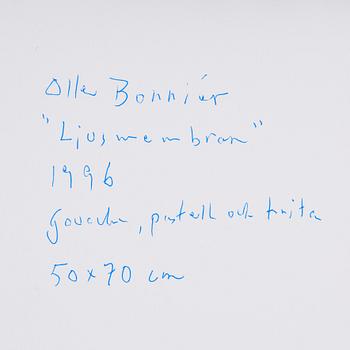 Olle Bonniér
"Ljusmembran"
1996
Gouache, pastell och krita
50x70 cm